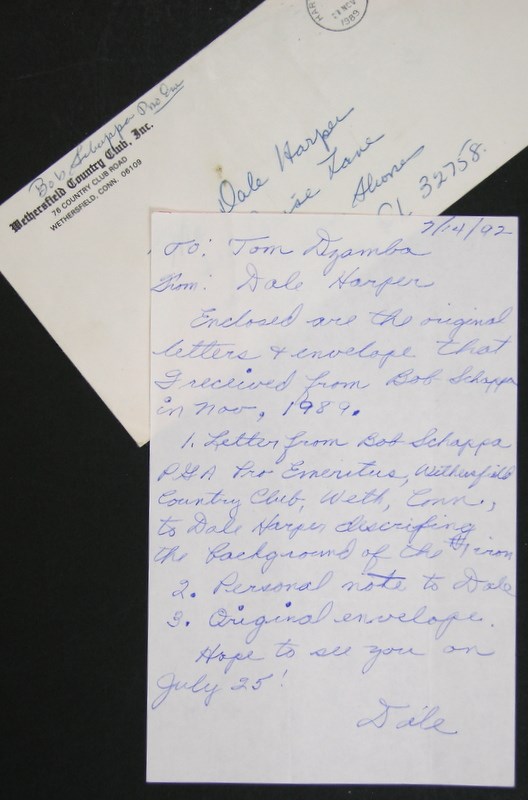 HAR
NOV
1989
Bob Schappa Pro Em
Wethersfield Country Club, Inc.
76 COUNTRY CLUB ROAD
WETHERSFIELD, CONN. 06109
Dale Harper
Lane
Shores
FL 32758.
7/14/92
To: Tom Dzamba
From: Dale Harper
Enclosed are the original
letters & envelope that
I received from Bob Schappa
in Nov, 1989.
1. Letter from Bob Schappa
PGA Pro Emeritus, Wethersfield
Country Club, Weth, Conn.,
to Dale Harper discribing
the background of the #1 iron
2. Personal note to Dale
3. Original envelope.
Hope to see you on
July 25!
Dale